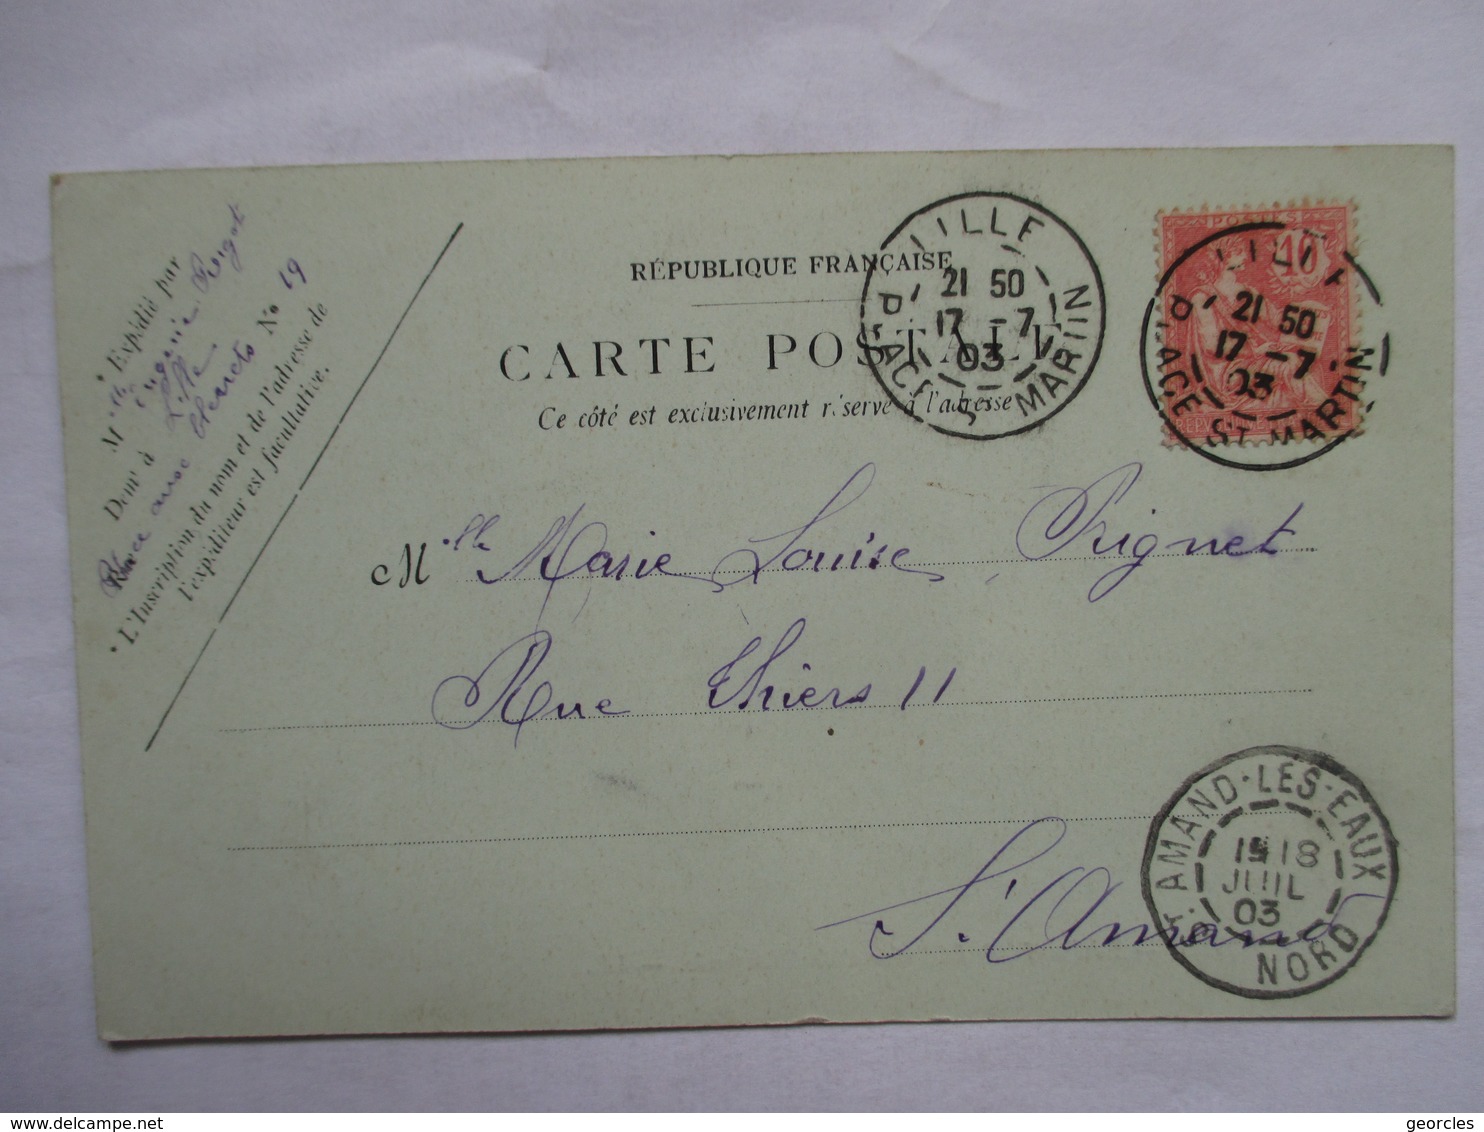 Expédié par
Mlle Eugénie Rigot
Demt à Lille
Place aux Bleuets No 19
L'Inscription du nom et de l'adresse de
l'expéditeur est facultative.
RÉPUBLIQUE FRANÇAISE
CARTE POSTALE
Ce côté est exclusivement réservé à l'adresse
LILLE
21 50
17 - 7
03
PLACE ST MARTIN
POSTES
10
LILLE
21 50
17 - 7
03
PLACE ST MARTIN
Mlle Marie Louise Rignet
Rue Thiers 11
St Amand
ST AMAND-LES-EAUX
18
JUIL
03
NORD
delcampe.net
georcles